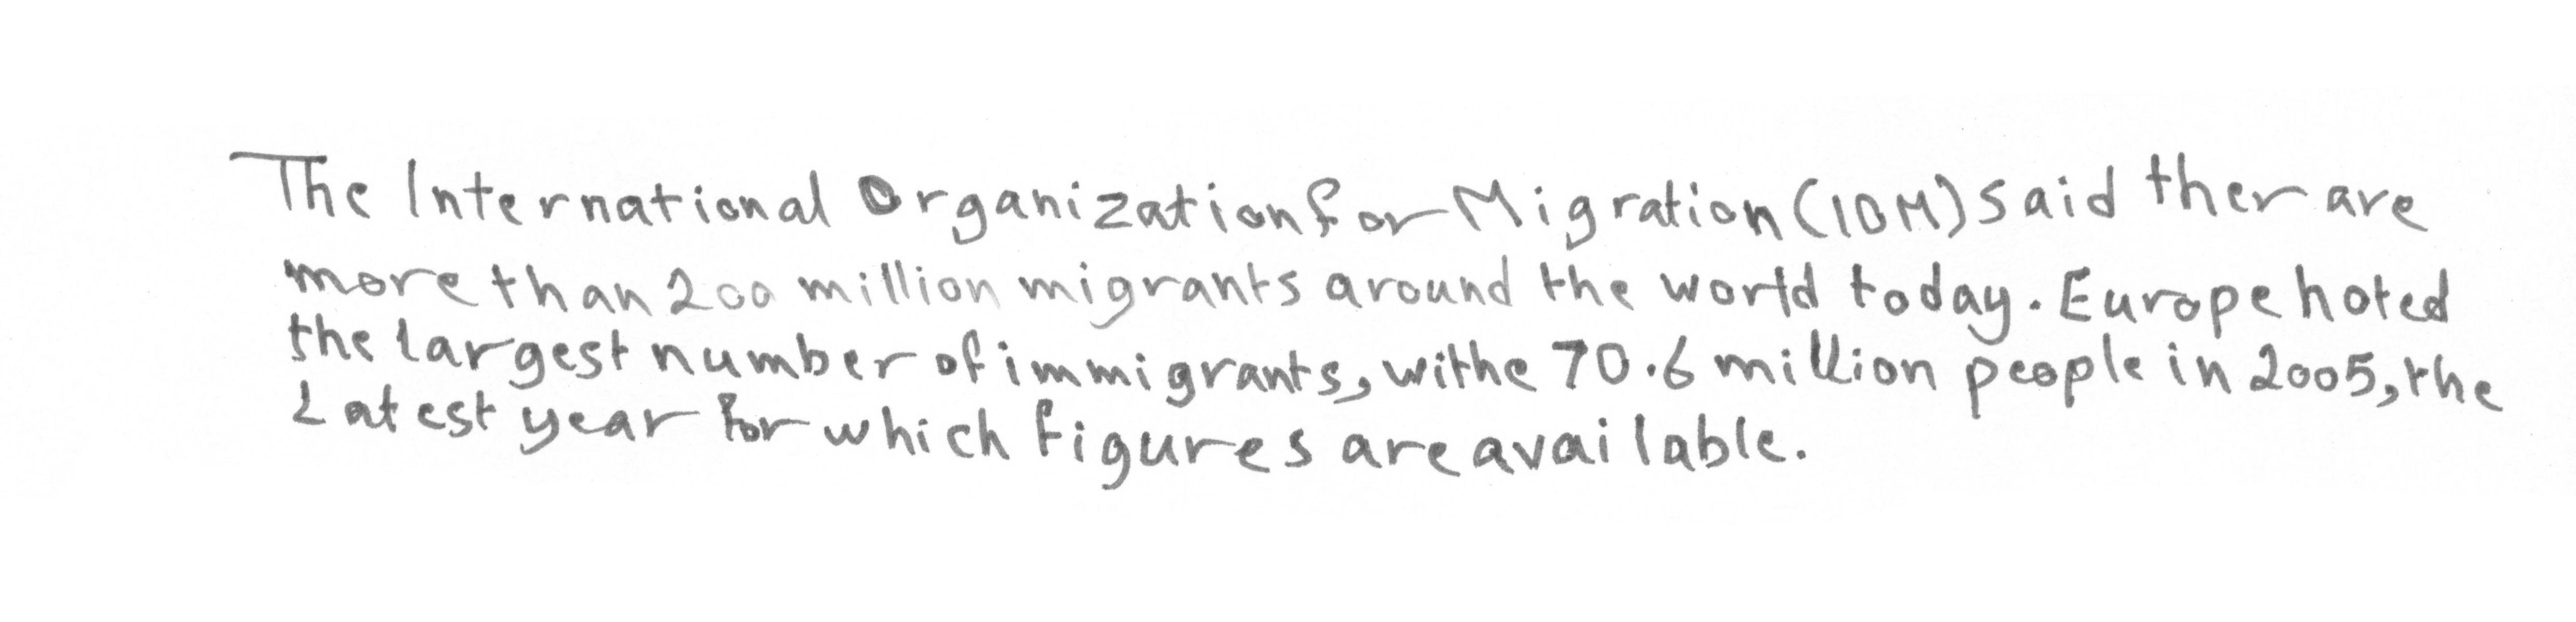 The International Organization for Migration (IOM) said ther are
more than 200 million migrants around the world today. Europe hoted
the largest number of immigrants, withe 70.6 million people in 2005, the
Latest year for which figures are available.